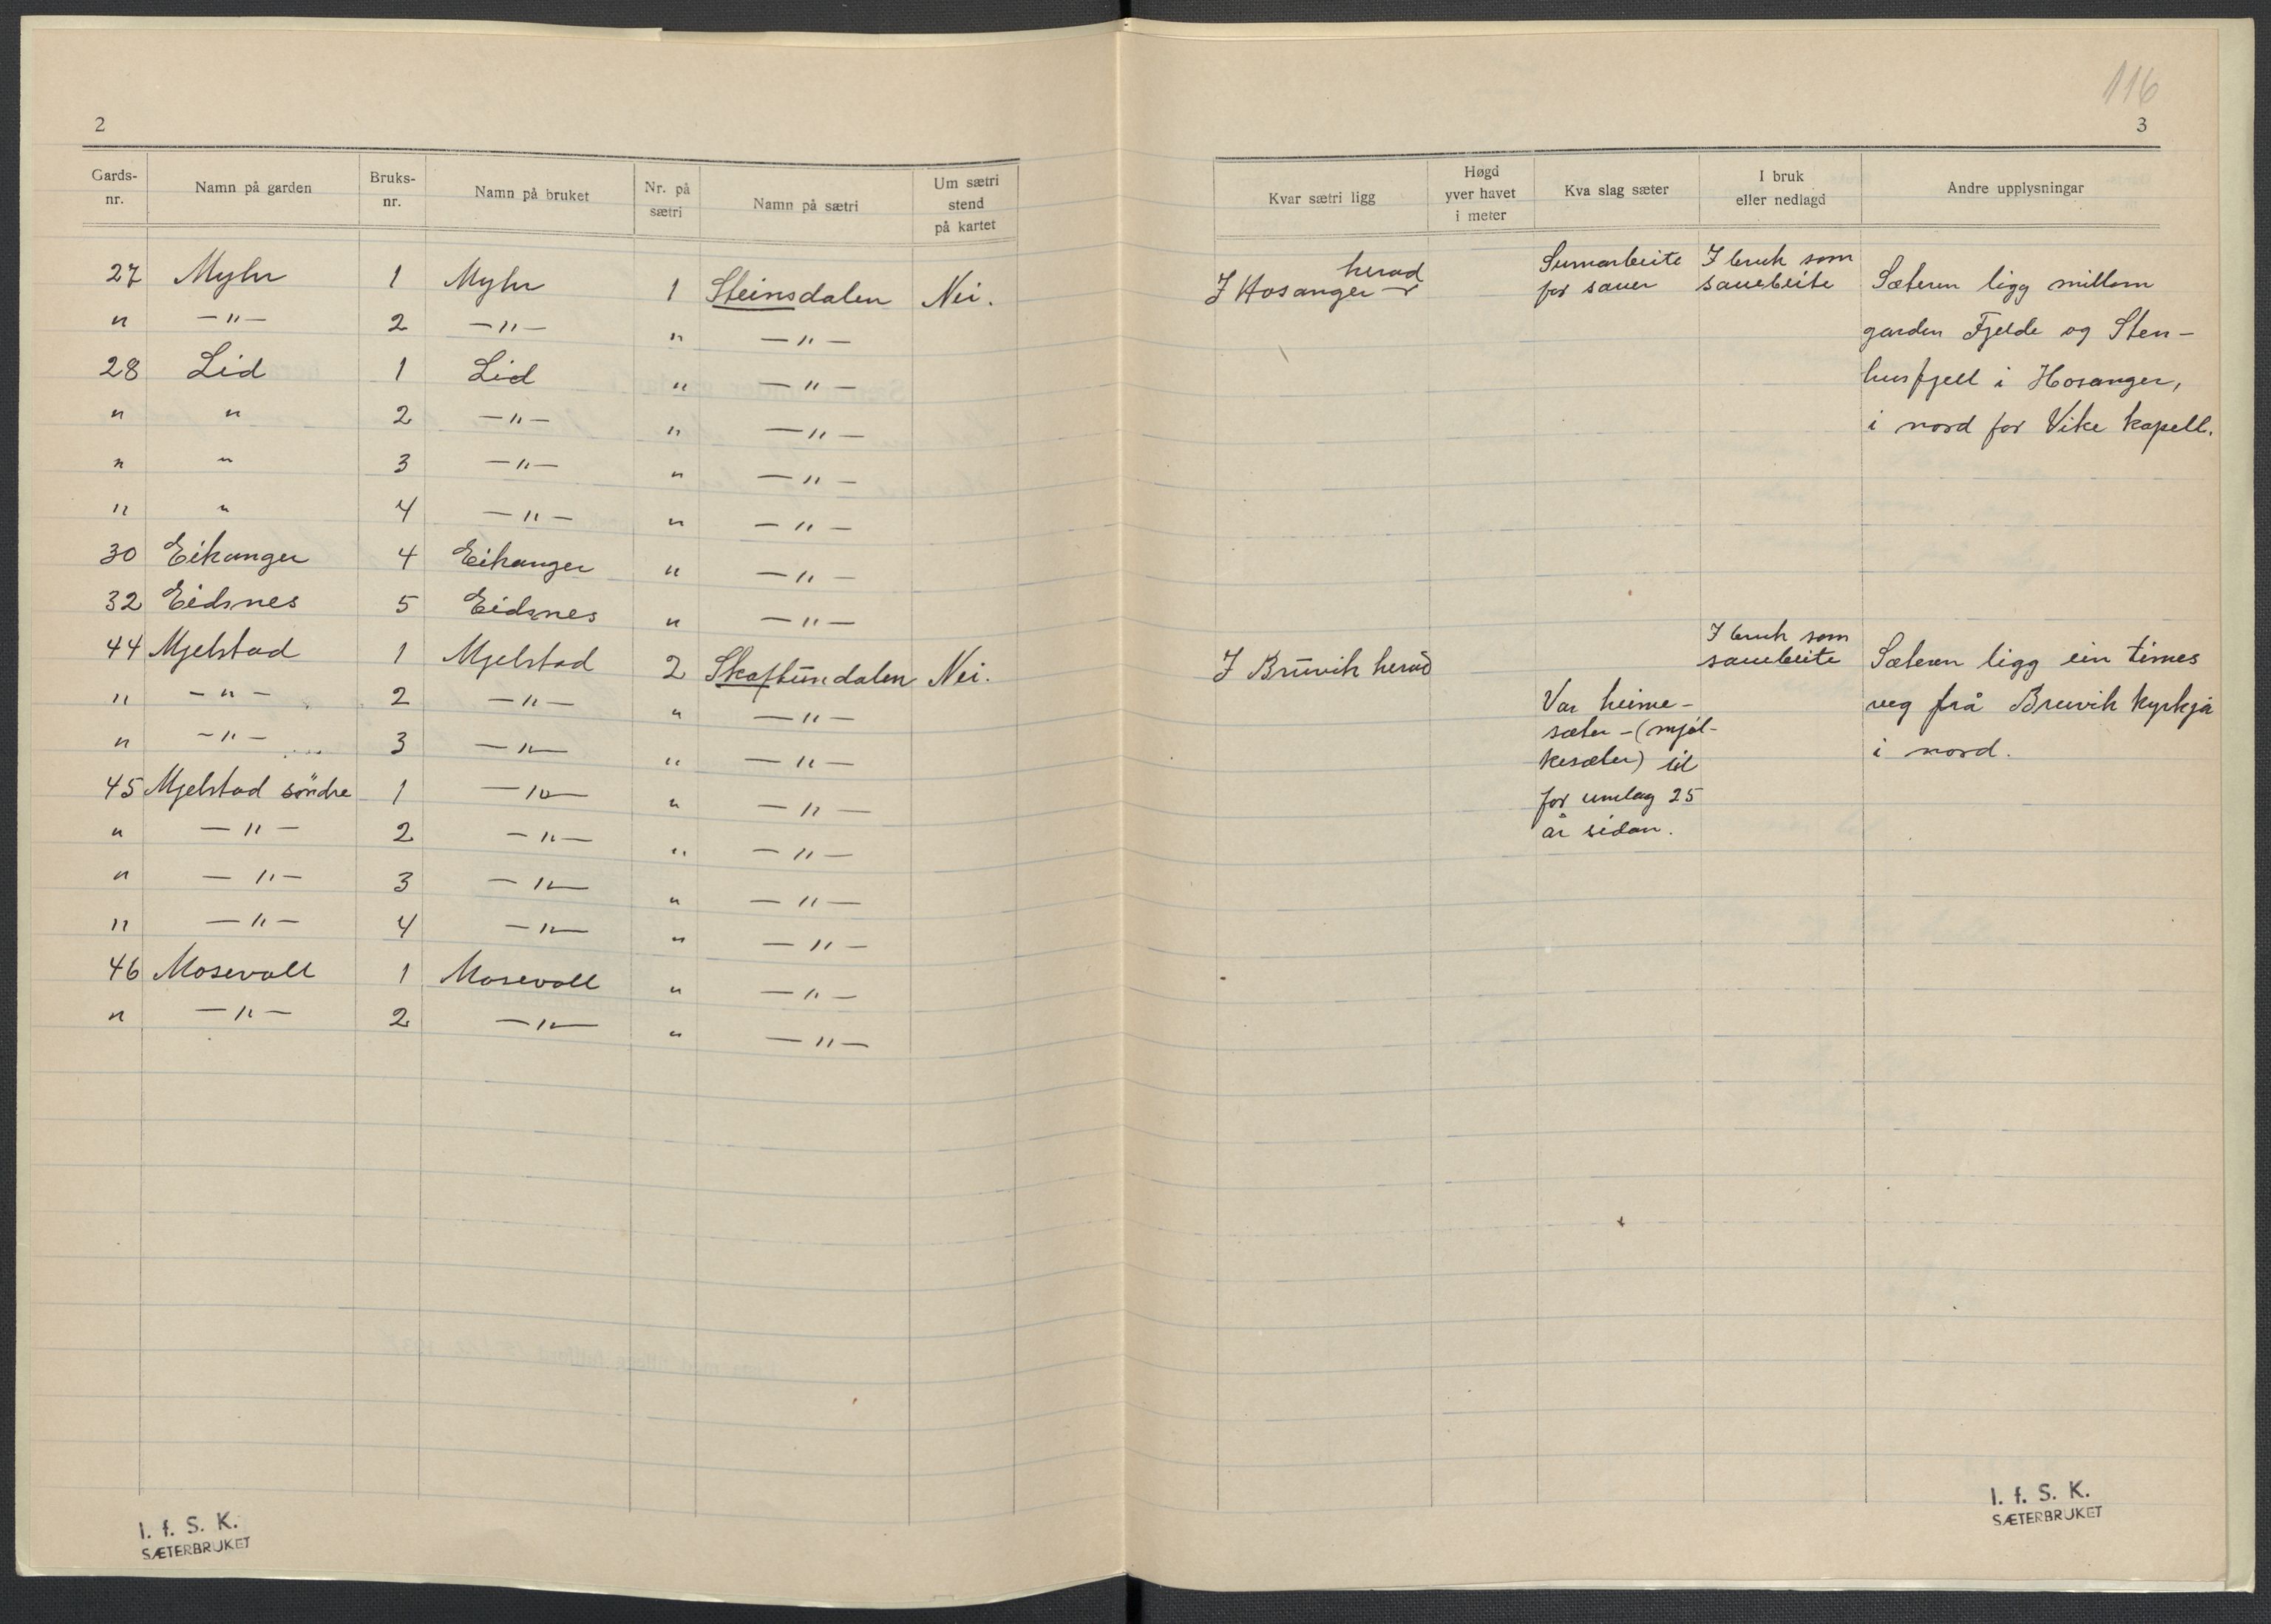 116
2
3
Gards-nr. Namn på garden Bruks-nr. Namn på bruket Nr. på sætri Namn på sætri Um sætri stend på kartet Kvar sætri ligg Høgd yver havet i meter Kva slag sæter I bruk eller nedlagd Andre upplysningar
27 Myhr 1 Myhr 1 Steinsdalen Nei. I Hosanger herad Sumarbeite for sauer I bruk som sauebeite Sæteren ligg millom
" —"— 2 —"— " —"— garden Fjelde og Sten-
28 Lid 1 Lid " —"— husfjell i Hosanger,
" " 2 —"— " —"— i nord for Vike kapell.
" " 3 —"— " —"—
" " 4 —"— " —"—
30 Eikanger 4 Eikanger " —"—
32 Eidsnes 5 Eidsnes " —"—
44 Mjelstad 1 Mjelstad 2 Skaftundalen Nei. I Bruvik herad I bruk som sauebeite Sæteren ligg ein times
" —"— 2 —"— " —"— Var heime- veg frå Bruvik kyrkja
" —"— 3 —"— " —"— sæter - (mjøl- i nord.
kesæter) til
45 Mjelstad söndre 1 —"— " —"— for umlag 25
" —"— 2 —"— " —"— år sidan.
" —"— 3 —"— " —"—
" —"— 4 —"— " —"—
46 Mosevoll 1 Mosevoll " —"—
" —"— 2 —"— " —"—
I. f. S. K.
SÆTERBRUKET
I. f. S. K.
SÆTERBRUKET